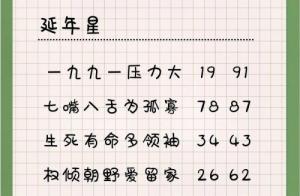 延年星
一九九一压力大 19 91
七嘴八舌为孤寡 78 87
生死有命多领袖 34 43
权倾朝野爱留家 26 62